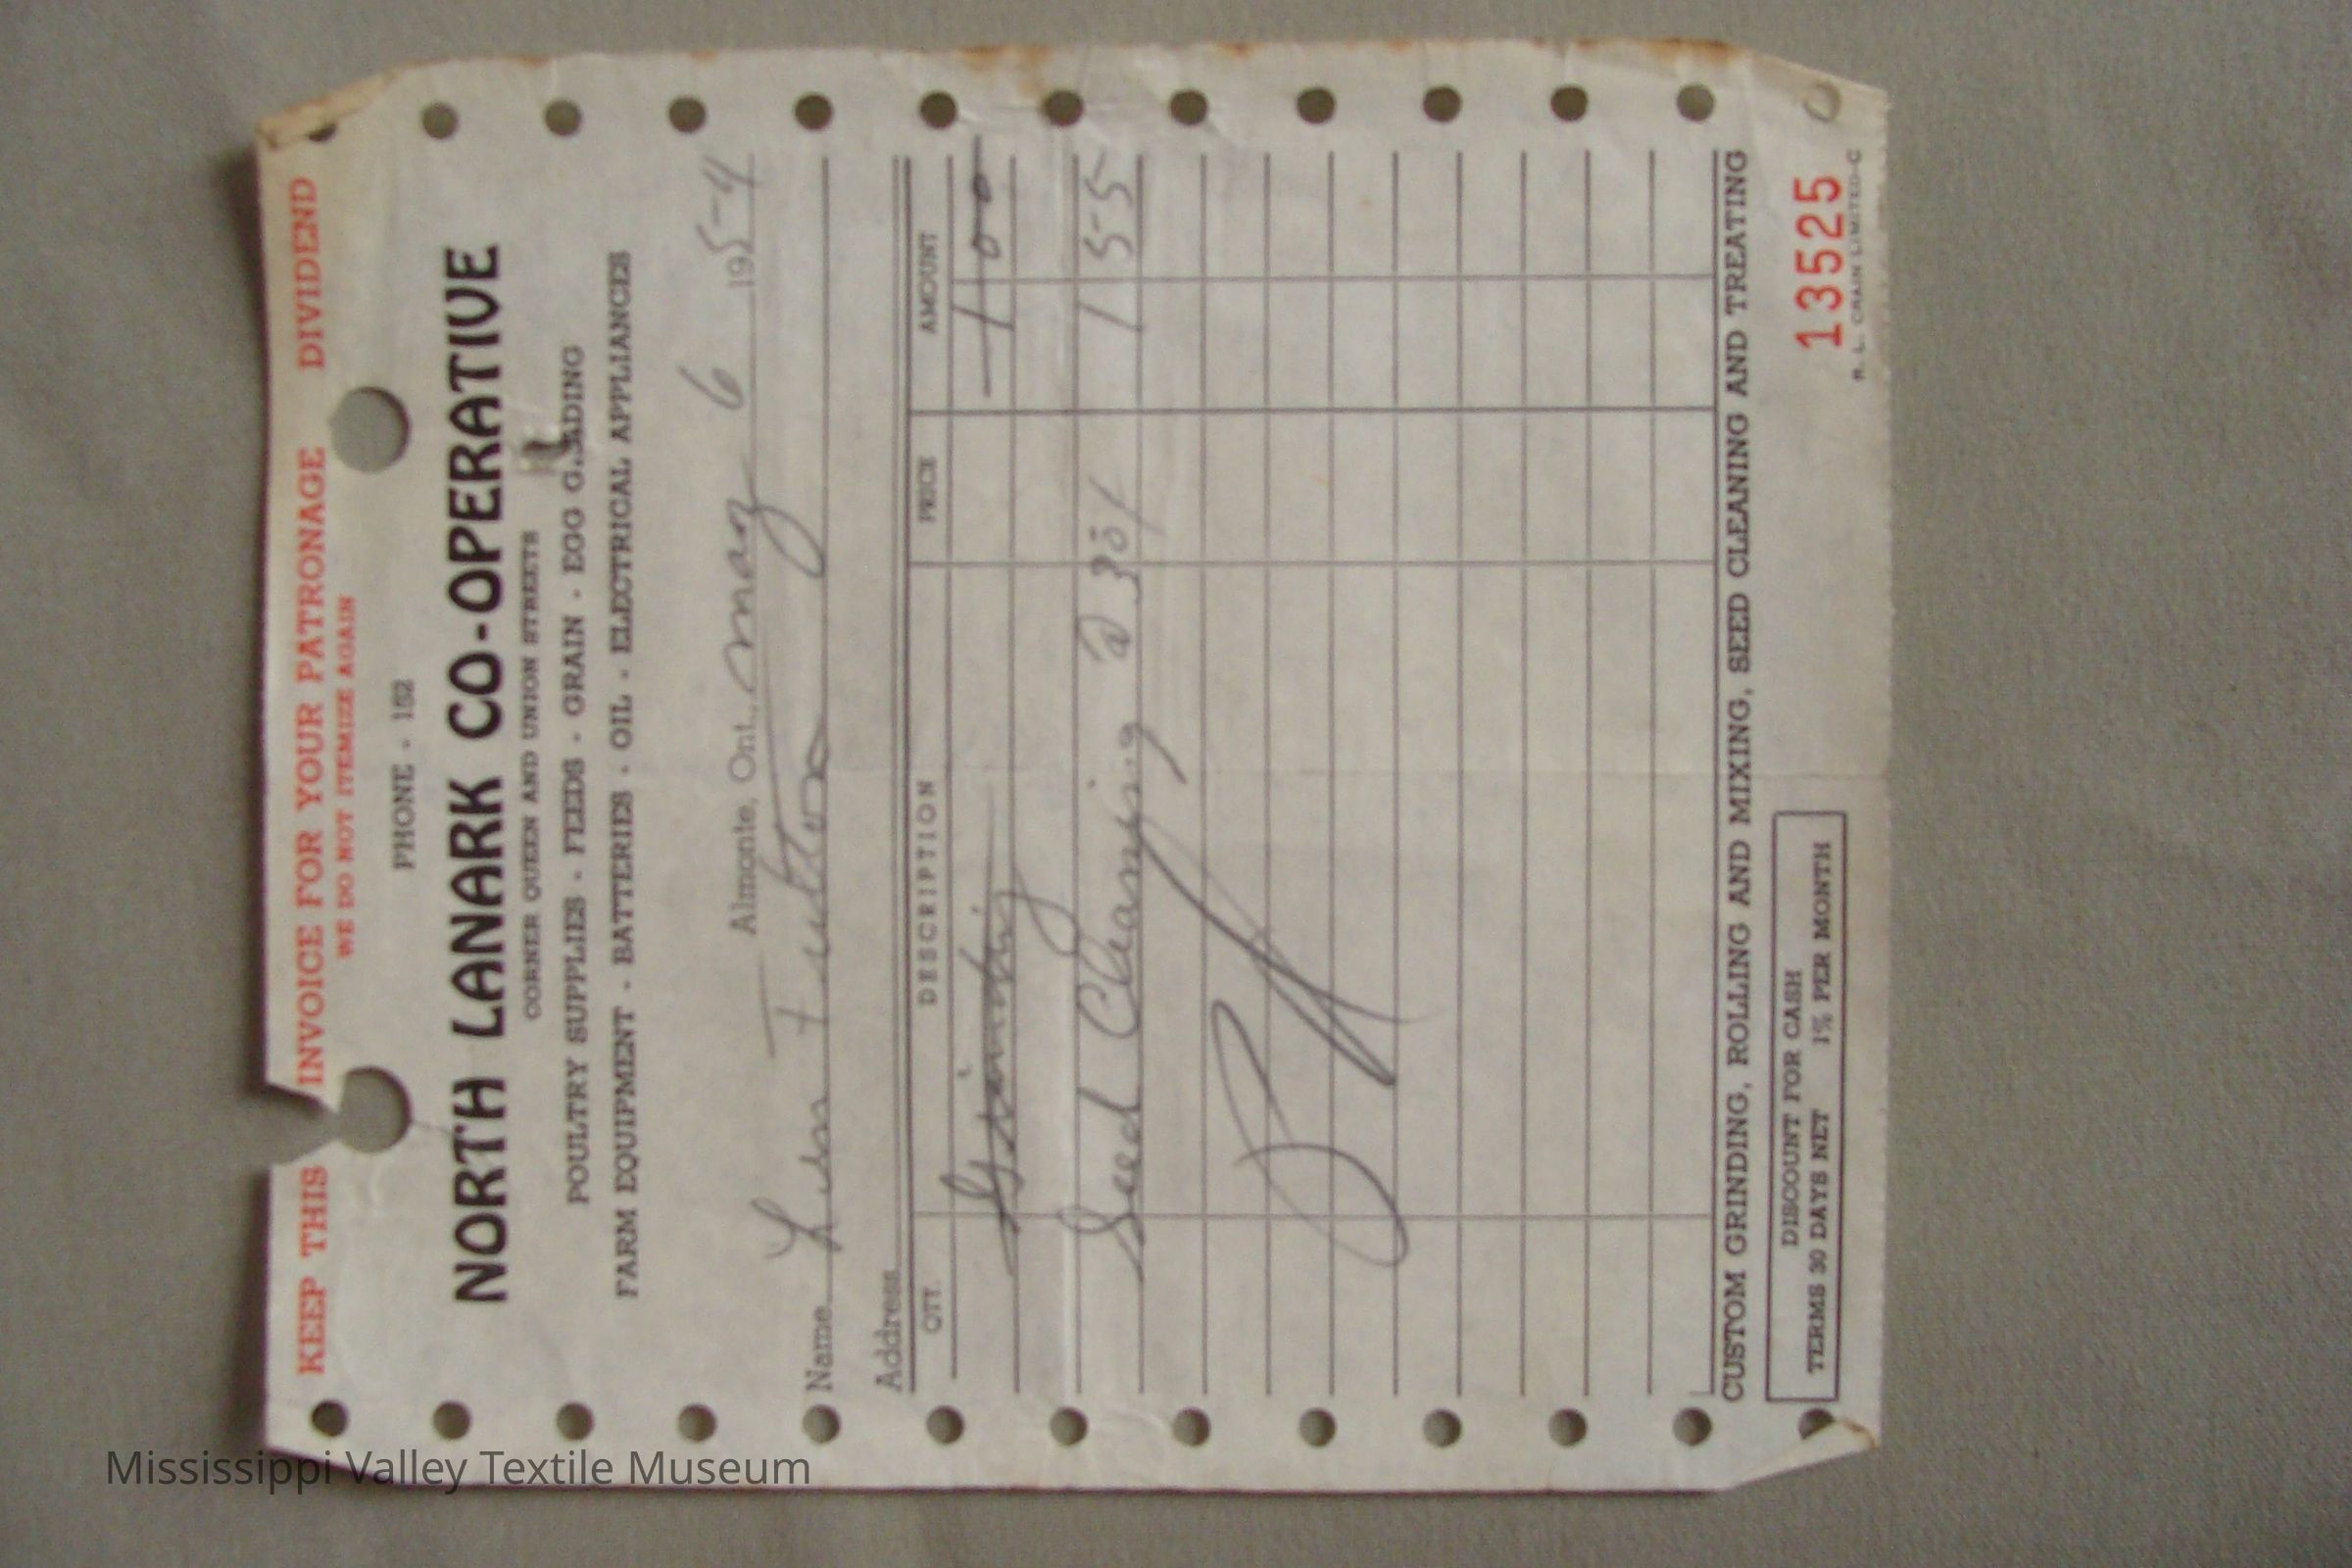 KEEP THIS INVOICE FOR YOUR PATRONAGE DIVIDEND
WE DO NOT ITEMIZE AGAIN
PHONE - 152
NORTH LANARK CO-OPERATIVE
CORNER QUEEN AND UNION STREETS
POULTRY SUPPLIES - FEEDS - GRAIN - EGG GRADING
FARM EQUIPMENT - BATTERIES - OIL - ELECTRICAL APPLIANCES
Almonte, Ont., May 6 1954
Name Fulton
Address
QTY. DESCRIPTION PRICE AMOUNT
Grinding 1 00
Seed Cleaning @ 30¢ 1 55
CUSTOM GRINDING, ROLLING AND MIXING, SEED CLEANING AND TREATING
DISCOUNT FOR CASH
TERMS 30 DAYS NET 1% PER MONTH
13525
R. L. CRAIN LIMITED-C
Mississippi Valley Textile Museum